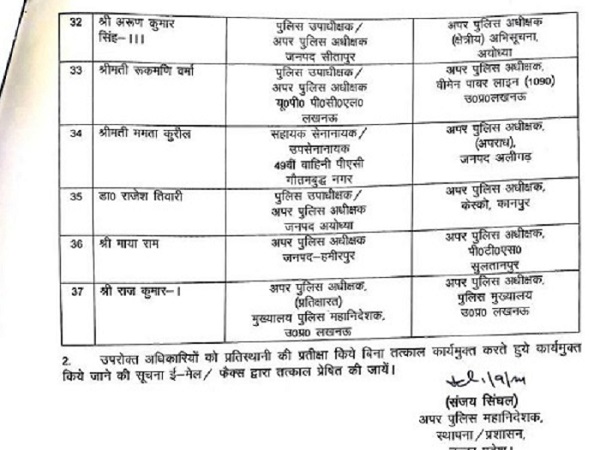 32 श्री अरूण कुमार सिंह-III पुलिस उपाधीक्षक/ अपर पुलिस अधीक्षक जनपद सीतापुर अपर पुलिस अधीक्षक (क्षेत्रीय) अभिसूचना, अयोध्या
33 श्रीमती रूकमणि वर्मा पुलिस उपाधीक्षक/ अपर पुलिस अधीक्षक यू०पी० पी०सी०एल० लखनऊ अपर पुलिस अधीक्षक, वीमेन पावर लाइन (1090) उ०प्र०लखनऊ
34 श्रीमती ममता कुरील सहायक सेनानायक/ उपसेनानायक 49वीं वाहिनी पीएसी गौतमबुद्ध नगर अपर पुलिस अधीक्षक, (अपराध), जनपद अलीगढ़
35 डा० राजेश तिवारी पुलिस उपाधीक्षक/ अपर पुलिस अधीक्षक जनपद अयोध्या अपर पुलिस अधीक्षक, केस्को, कानपुर
36 श्री माया राम अपर पुलिस अधीक्षक जनपद-हमीरपुर अपर पुलिस अधीक्षक, पी०टी०एस० सुलतानपुर
37 श्री राज कुमार-I अपर पुलिस अधीक्षक, (प्रतिक्षारत) मुख्यालय पुलिस महानिदेशक, उ०प्र० लखनऊ अपर पुलिस अधीक्षक, पुलिस मुख्यालय उ०प्र० लखनऊ
2. उपरोक्त अधिकारियों को प्रतिस्थानी की प्रतीक्षा किये बिना तत्काल कार्यमुक्त करते हुये कार्यमुक्त
किये जाने की सूचना ई-मेल/ फैक्स द्वारा तत्काल प्रेषित की जायें।
(संजय सिंघल)
अपर पुलिस महानिदेशक,
स्थापना/प्रशासन,